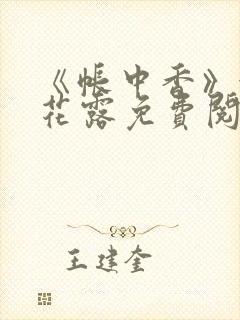 《帐中香》
花露免费阅
王建奎